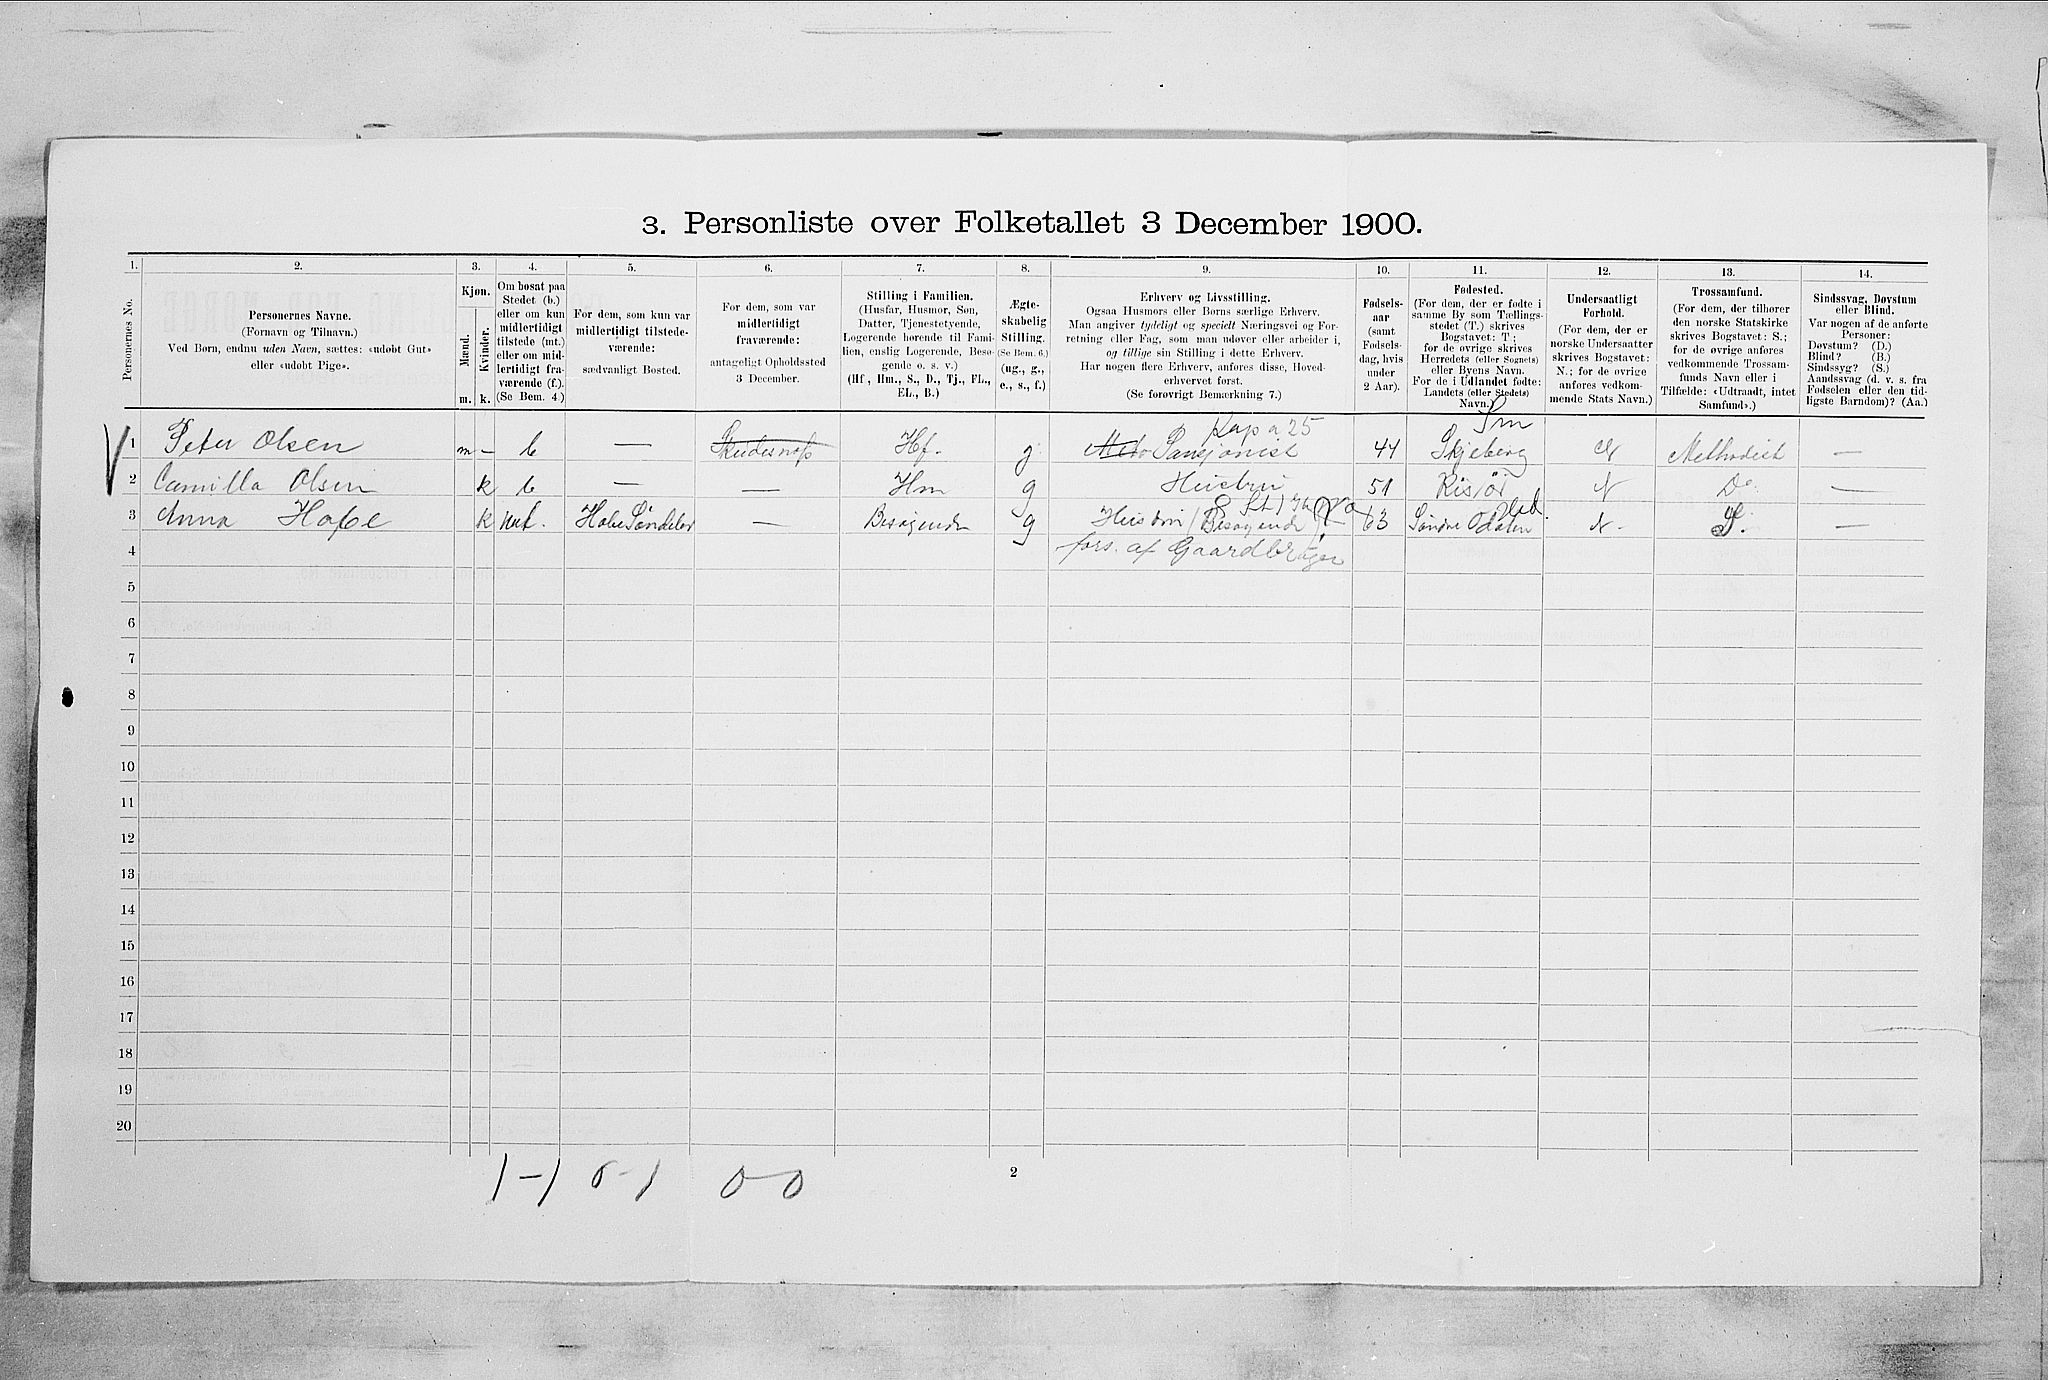 3. Personliste over Folketallet 3 December 1900.
1. 2. 3. 4. 5. 6. 7. 8. 9. 10. 11. 12. 13. 14.
Personernes No.
Personernes Navne.
(Fornavn og Tilnavn.)
Ved Børn, endnu uden Navn, sættes: «udøbt Gut»
eller «udøbt Pige».
Kjøn.
Mænd.
Kvinder.
m. k.
Om bosat paa
Stedet (b.)
eller om kun
midlertidigt
tilstede (mt.)
eller om mid-
lertidigt fra-
værende (f.).
(Se Bem. 4.)
For dem, som kun var
midlertidigt tilstede-
værende:
sædvanligt Bosted.
For dem, som var
midlertidigt
fraværende:
antageligt Opholdssted
3 December.
Stilling i Familien.
(Husfar, Husmor, Søn,
Datter, Tjenestetyende,
Logerende hørende til Fami-
lien, enslig Logerende, Besø-
gende o. s. v.)
(Hf., Hm., S., D., Tj., FL.,
EL., B.)
Ægte-
skabelig
Stilling.
(Se Bem. 6.)
(ug., g.,
e., s., f.)
Erhverv og Livsstilling.
Ogsaa Husmors eller Børns særlige Erhverv.
Man angiver tydeligt og specielt Næringsvei og For-
retning eller Fag, som man udøver eller arbeider i,
og tillige sin Stilling i dette Erhverv.
Har nogen flere Erhverv, anføres disse, Hoved-
erhvervet først.
(Se forøvrigt Bemærkning 7.)
Fødsels-
aar
(samt
Fødsels-
dag, hvis
under
2 Aar).
Fødested.
(For dem, der er fødte i
samme By som Tællings-
stedet (T.) skrives
Bogstavet: T;
for de øvrige skrives
Herredets (eller Sognets)
eller Byens Navn.
For de i Udlandet fødte:
Landets (eller Stedets)
Navn.)
Undersaatligt
Forhold.
(For dem, der er
norske Undersaatter
skrives Bogstavet:
N.; for de øvrige
anføres vedkom-
mende Stats Navn.)
Trossamfund.
(For dem, der tilhører
den norske Statskirke
skrives Bogstavet: S.;
for de øvrige anføres
vedkommende Trossam-
funds Navn eller i
Tilfælde: «Udtraadt, intet
Samfund».)
Sindssvag, Døvstum
eller Blind.
Var nogen af de anførte
Personer:
Døvstum? (D.)
Blind? (B.)
Sindssyg? (S.)
Aandssvag (d. v. s. fra
Fødselen eller den tid-
ligste Barndom)? (Aa.)
Kap a 25 Sm
1 Peter Olsen m – b — Skudesnæs Hf. g. Pensjonist 44 Skjeberg N Methodist —
2 Camilla Olsen k b — — Hm g Hustru 51 Risør N Do. —
3 Anna Hope k mt. Hobe Søndeløv — Besøgende g Hustru (Besøgende) 63 Søndre Odalen N. S. —
4 fors. af Gaardbruger
5
6
7
8
9
10
11
12
13
14
15
16
17
18
19
20
1–1 0–1 0–0
2